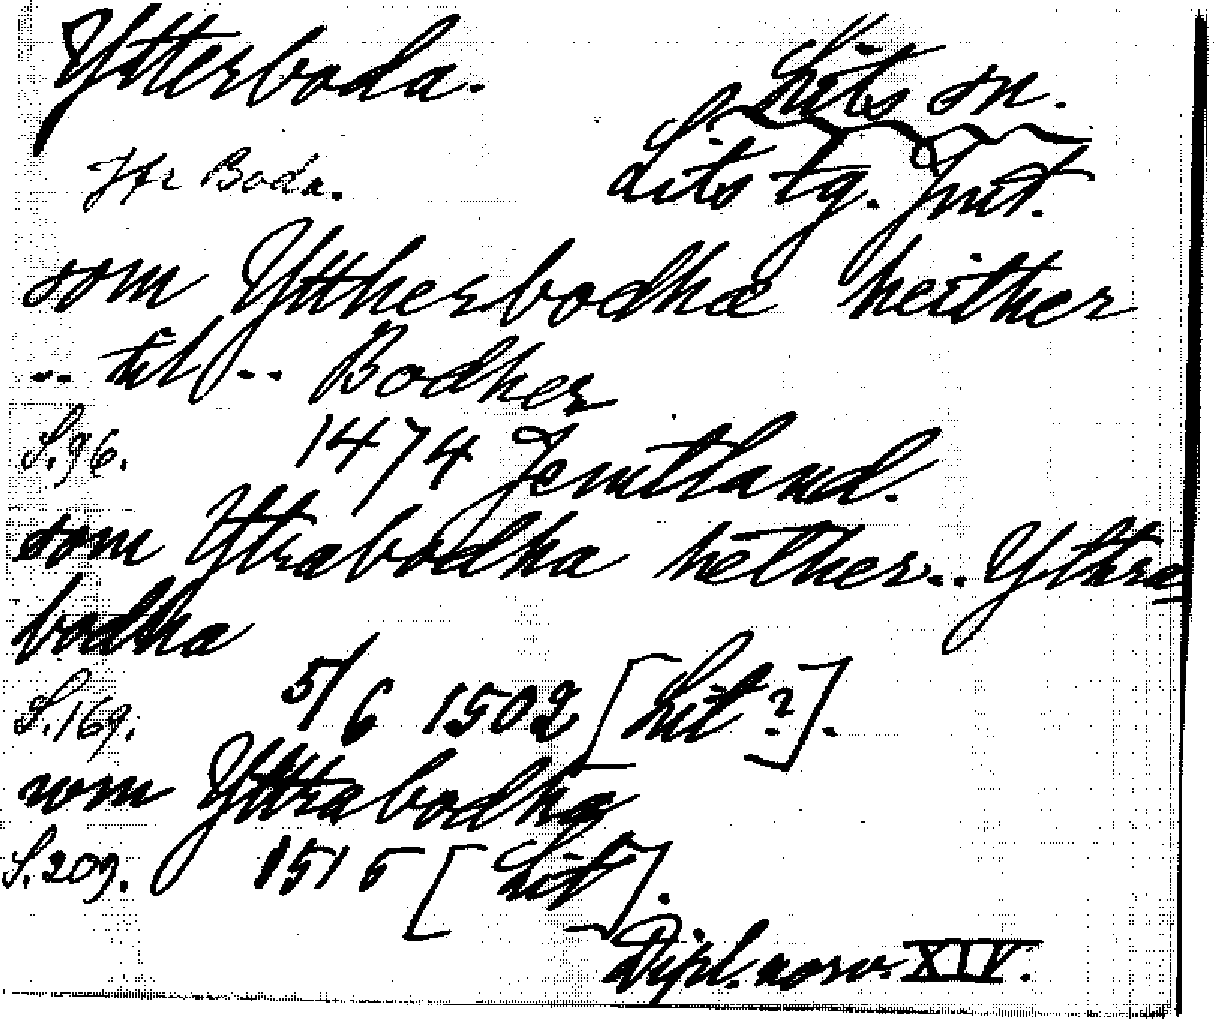 Ytterboda. Lits sn.
Jfr Boda. Lits tg. Jmt.
som Yttherbodhæ heither
.. til .. Bodher
S. 96. 1474 Jemtland.
som Ytrabodha hether.. Ythre
bodha
S. 169. 5/6 1502 [Lit?].
som Yttrabodha
S. 209. 1515 [Lit].
Dipl. norv. XIV.